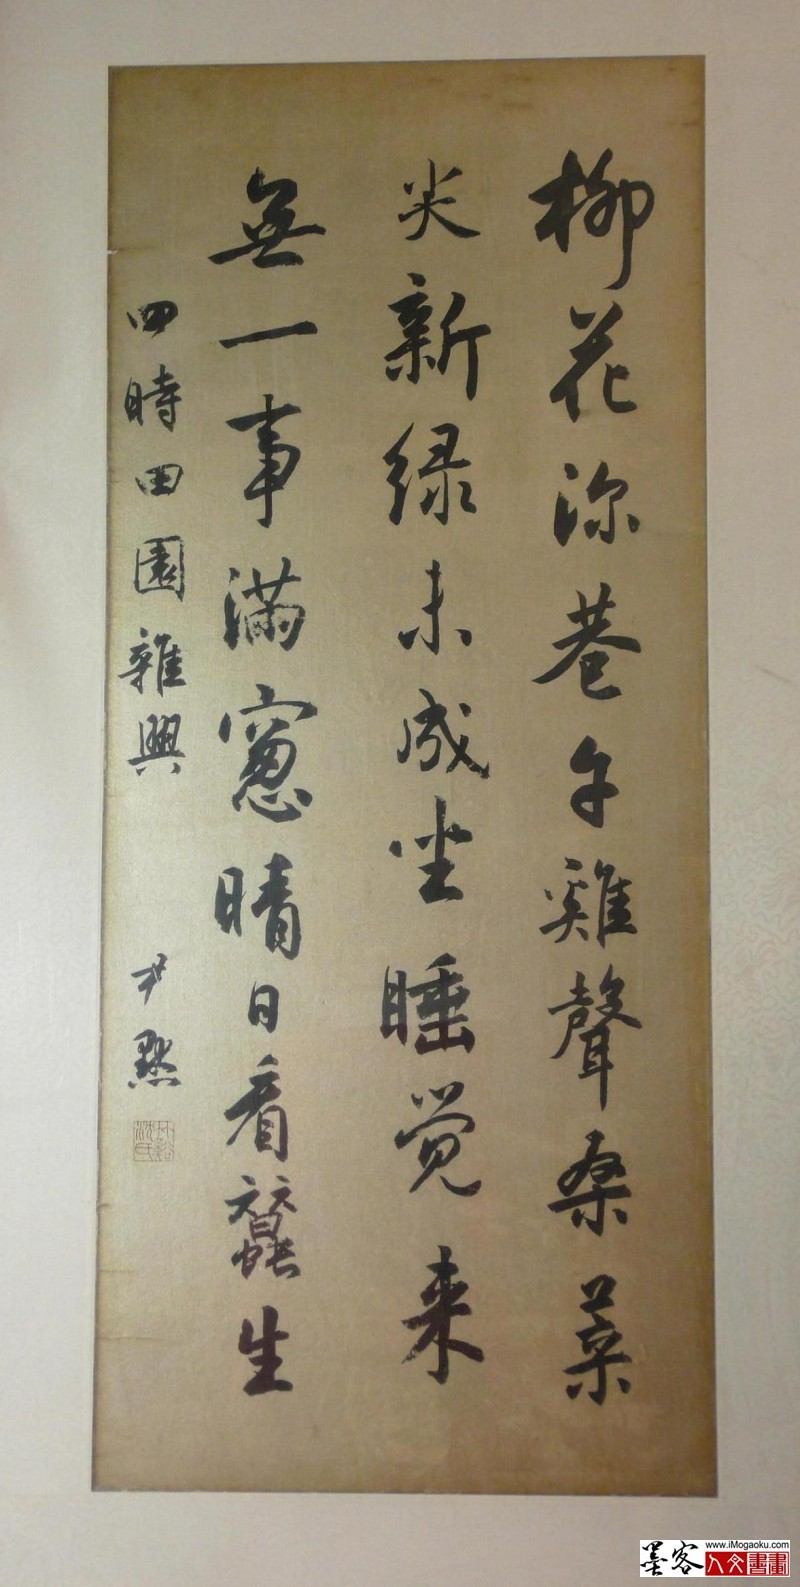 柳花深巷午雞聲桑葉
尖新緑未成坐睡觉来
無一事滿窻晴日看蠶生
四時田園雜興
尹默
墨客
www.iMogaoku.com
人文書畫